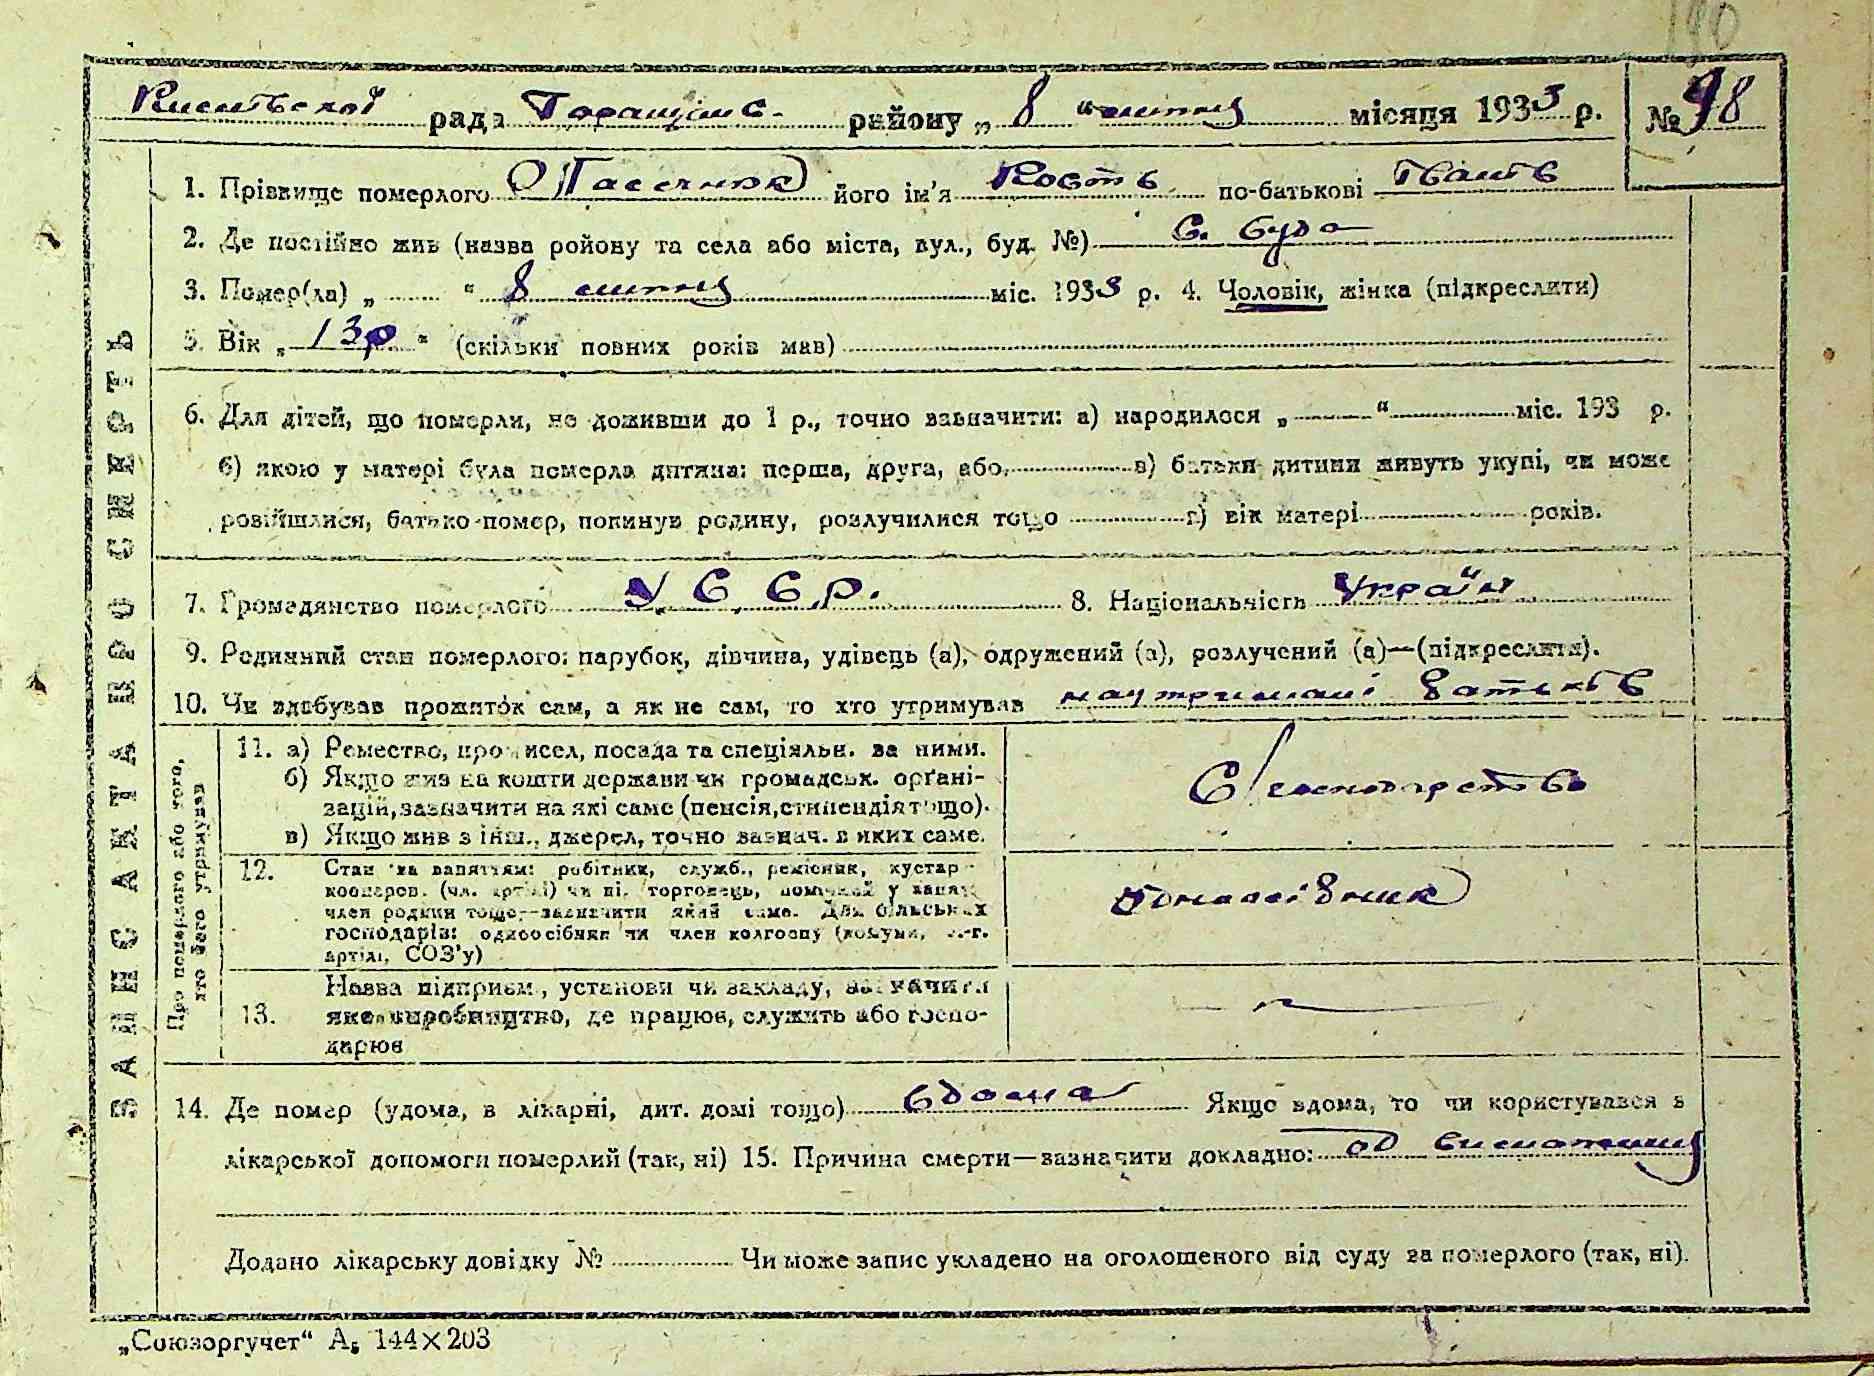 190
рада Таращанс. району „ 8 “ липня місяця 1933 р. № 98
1. Прізвище померлого Пасечник його ім'я Кость по-батькові Іванів
2. Де постійно жив (назва ройону та села або міста, вул., буд. №) С. Буда
3. Помер(ла) „ “ 8 липня міс. 1933 р. 4. Чоловік, жінка (підкреслити)
5. Вік „ 13 р “ (скільки повних років мав)
6. Для дітей, що померли, не доживши до 1 р., точно зазначити: а) народилося „ “ міс. 193 р.
б) якою у матері була померла дитяна: перша, друга, або в) батьки дитини живуть укупі, чи може
розійшлися, батько помер, покинув родину, розлучилися тощо г) вік матері років.
7. Громадянство померлого У С С Р. 8. Національність Україн
9. Родинний стан померлого: парубок, дівчина, удівець (а), одружений (а), розлучений (а)—(підкреслити).
10. Чи здобував прожиток сам, а як не сам, то хто утримував на утримані батьків
ЗАПИС АКТА ПРО СМЕРТЬ
Про померлого або того,
хто його утримував
11. а) Ремество, промисел, посада та спеціяльн. за ними.
б) Якщо жив на кошти держави чи громадськ. органі-
зацій, зазначити на які саме (пенсія, стипендія тощо).
в) Якщо жив з інш., джерел, точно зазнач. з яких саме.
С/господарство
12. Стан за заняттям: робітник, служб., ремісник, кустар
кооперов. (чл. артілі) чи ні, торговець, помічний у занят.
член родини тощо,—зазначити який саме. Для сільських
господарів: одноосібник чи член колгоспу (комуни, с.-г.
артілі, СОЗ'у)
Одноосібник
13. Назва підприєм., установи чи закладу, зазначити
яке виробництво, де працює, служить або госпо-
дарює
14. Де помер (удома, в лікарні, дит. домі тощо) вдома Якщо вдома, то чи користувався з
лікарської допомоги померлий (так, ні) 15. Причина смерти—зазначити докладно: од виснаження
Додано лікарську довідку № Чи може запис укладено на оголошеного від суду за померлого (так, ні).
„Союзоргучет“ А₅ 144×203